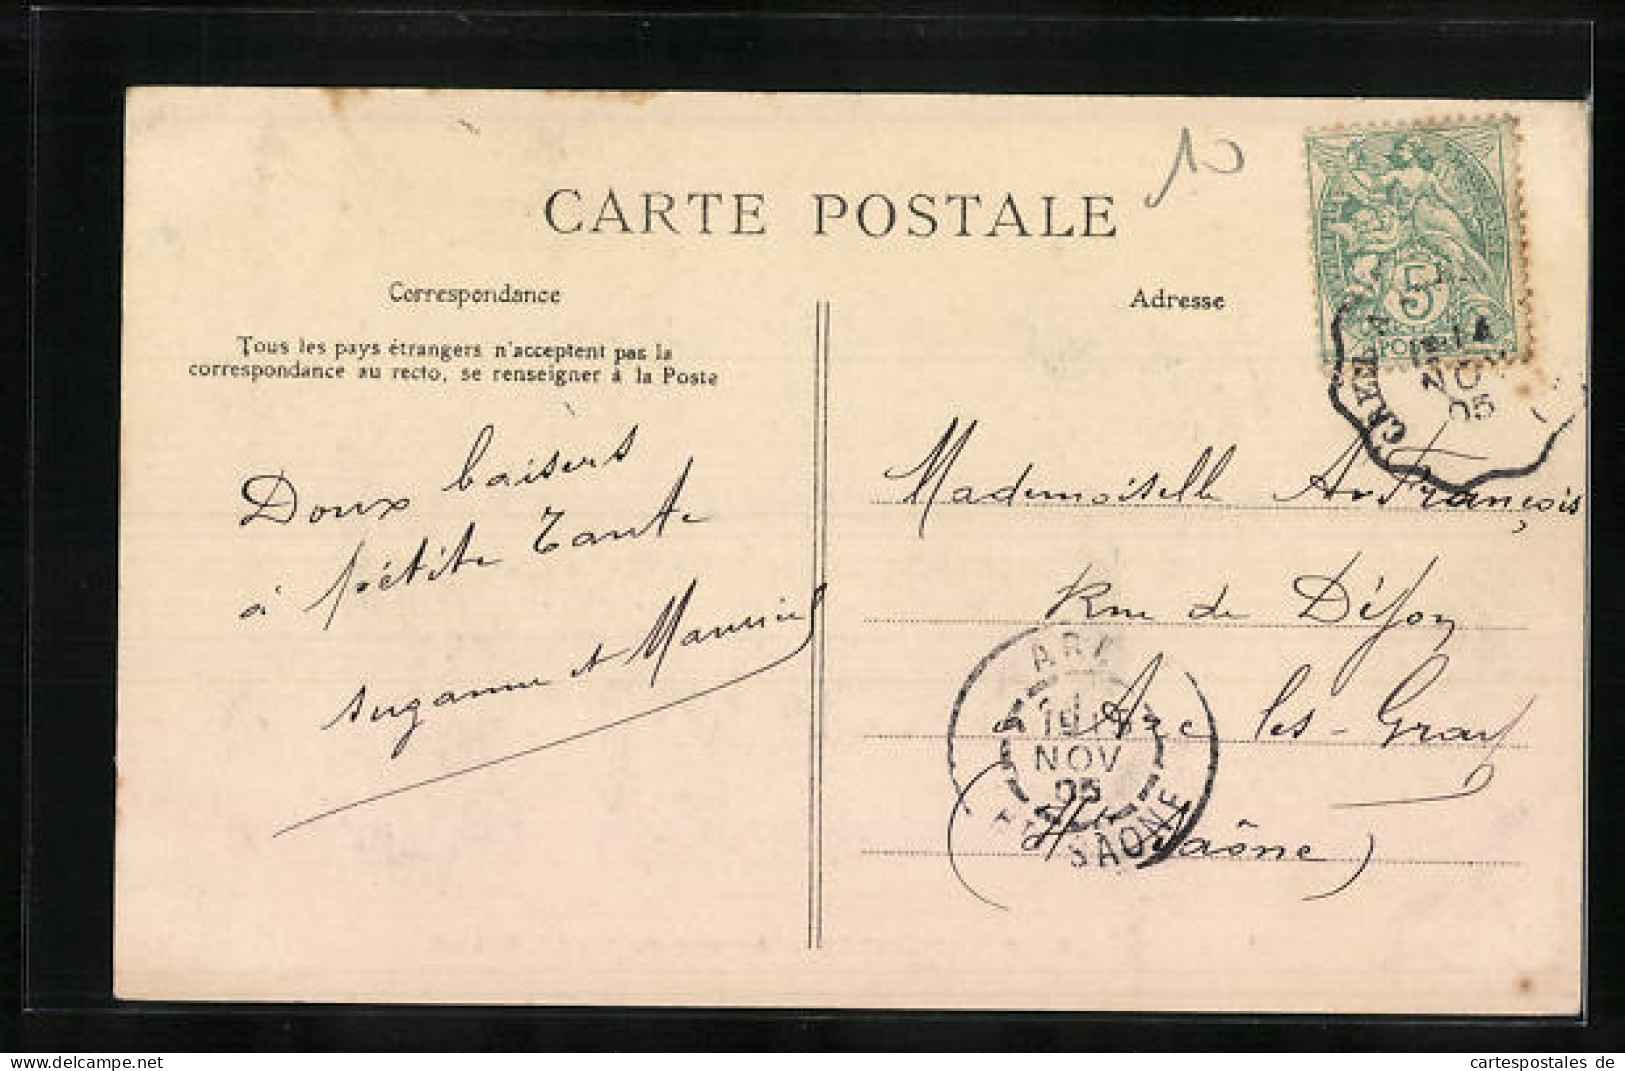 CARTE POSTALE
10
Correspondance
Tous les pays étrangers n'acceptent pas la
correspondance au recto, se renseigner à la Poste
Doux baisers
à pétite Tante
Suzanne et Maurice
Adresse
5
CREIL
NOV
05
Mademoiselle A. François
Rue de Dijon
à Arc les-Gray
(Hte Saône)
ARC
NOV
05
SAÔNE
Ihr Ansichtskarten-Center
cartespostales de